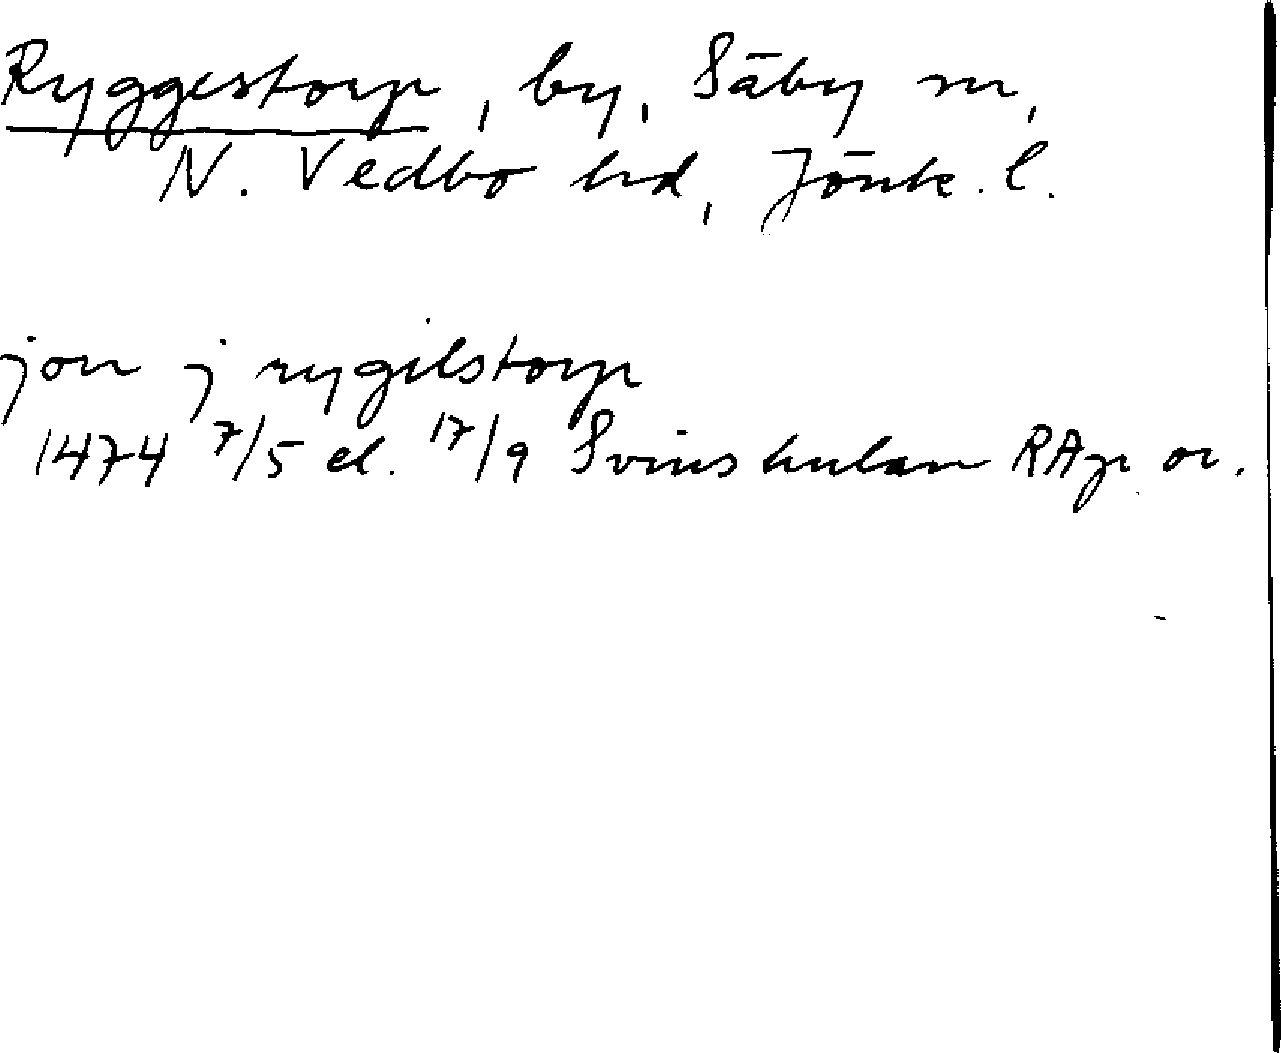 Ryggestorp, by, Säby sn,
N. Vedbo hd, Jönk. l.
jon j rygilstorp
1474 7/5 el. 17/9 Svinshulan RAp or.